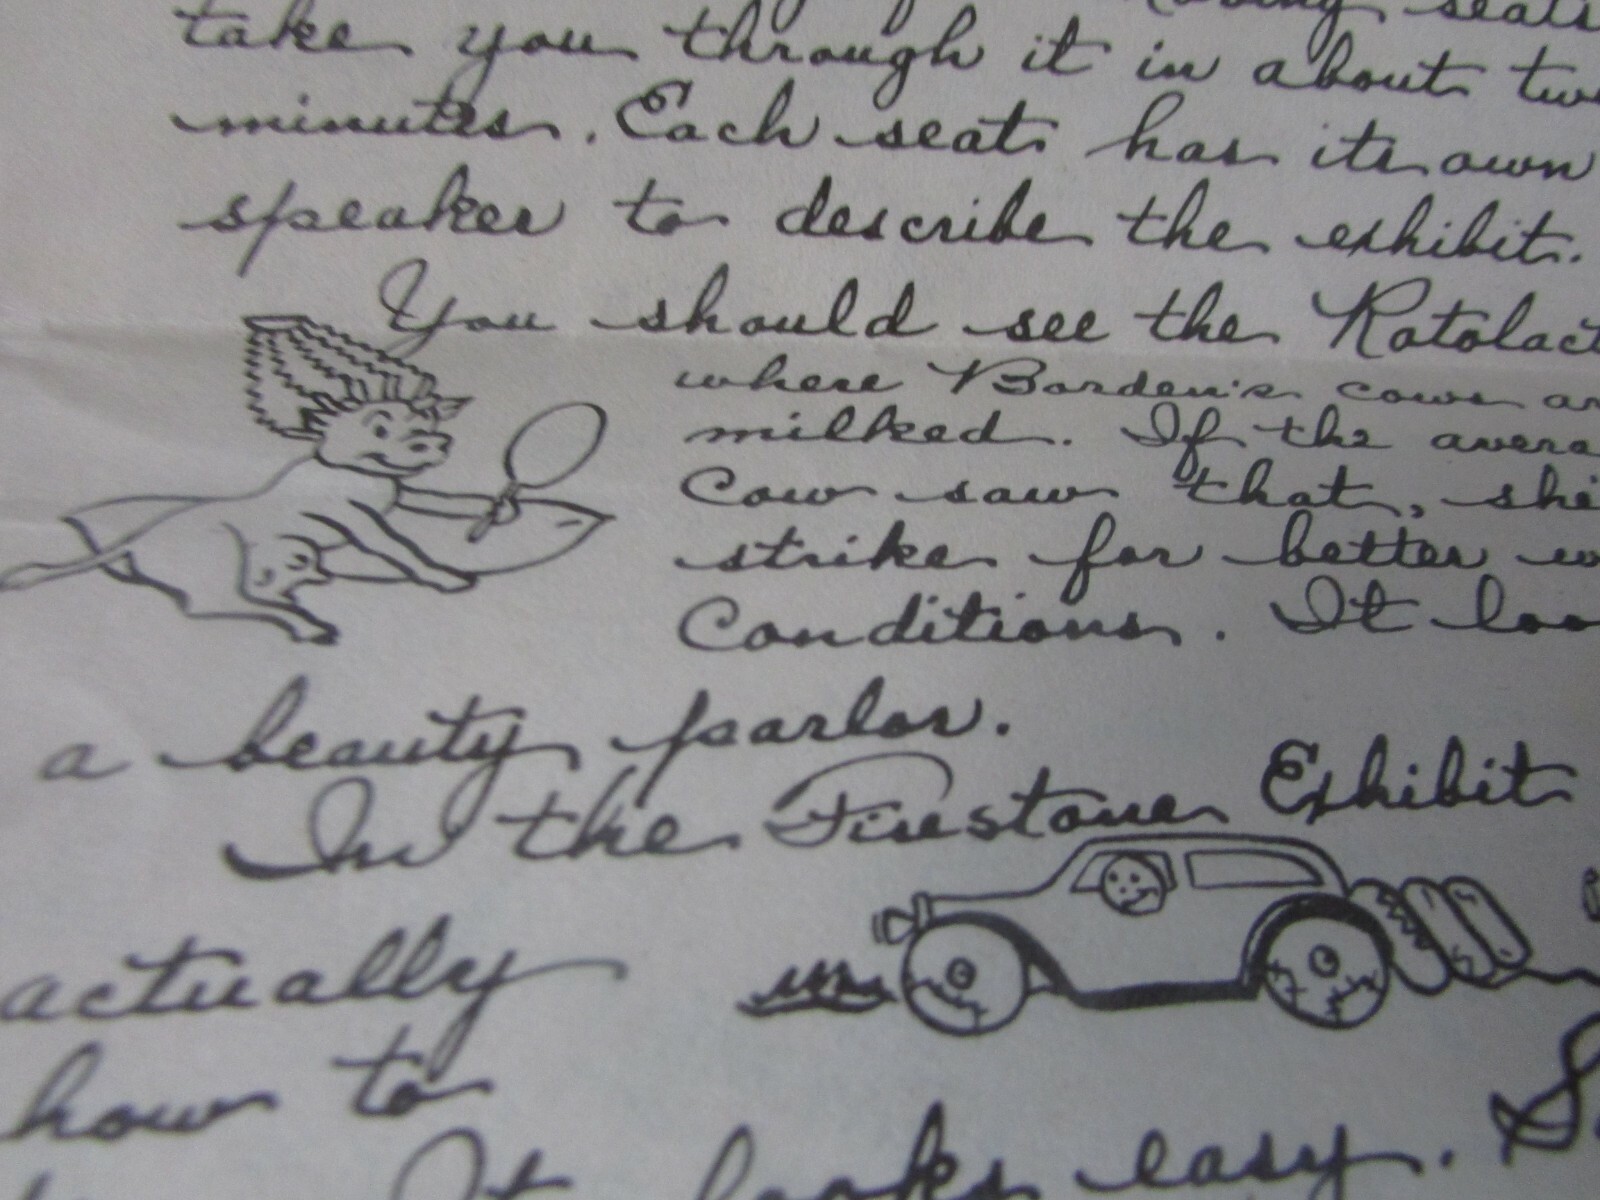 seats
take you through it in about
minutes. Each seat has its own
speaker to describe the exhibit.
You should see the Rotolact
where Borden's cows
milked. If the
cow saw that,
strike for better
conditions. It
a beauty parlor.
In the Firestone Exhibit
actually
how to
It looks easy.